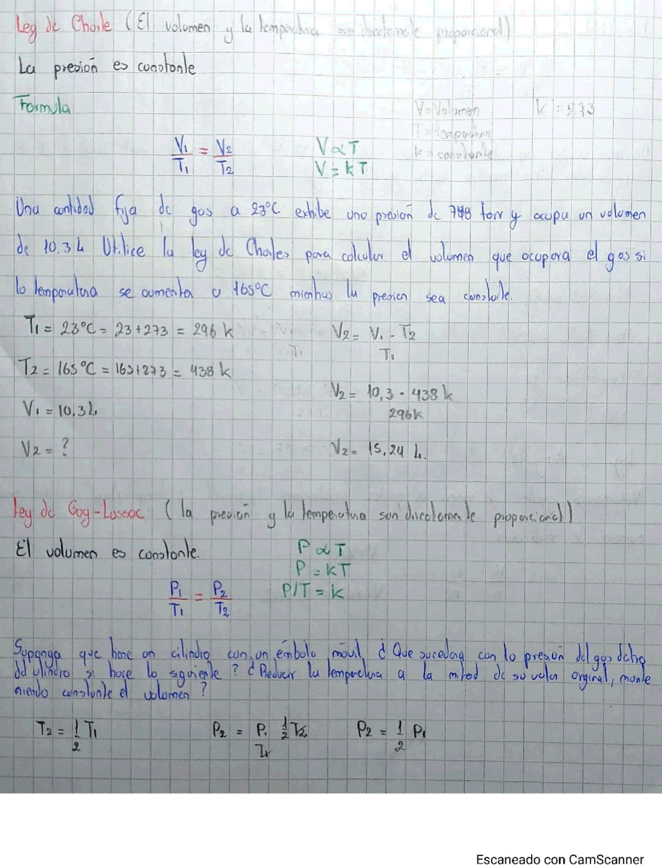 Ley de Charle (El volumen y la temperatura son directamente proporcional)
La presión es constante
Formula
V = Volumen K = 273
T = temperatura
k = constante
V₁/T₁ = V₂/T₂
V ∝ T
V = kT
Una cantidad fija de gas a 23°C exhibe una presión de 748 torr y ocupa un volumen
de 10.3 L Utilice la ley de Charles para calcular el volumen que ocupara el gas si
la temperatura se aumenta a 165°C mientras la presion sea constante.
T₁ = 23°C = 23+273 = 296 k
T₂ = 165°C = 165+273 = 438 k
V₁ = 10,3 L
V₂ = ?
V₂ = V₁ · T₂
T₁
V₂ = 10,3 · 438 k
296k
V₂ = 15,24 L.
Ley de Gay-Lossac (la presión y la temperatura son directamente proporcional)
El volumen es constante.
P ∝ T
P = kT
P/T = k
P₁/T₁ = P₂/T₂
Suponga que hane un cilindro con un émbolo móvil, ¿Que sucedera con la presión del gas detro
del cilindro si hace lo siguiente? ¿Reducir la temperatura a la mitad de su valor orginal, mante
niendo constante el volumen?
T₂ = 1/2 T₁
P₂ = P₁ 1/2 T₁
T₁
P₂ = 1/2 P₁
Escaneado con CamScanner